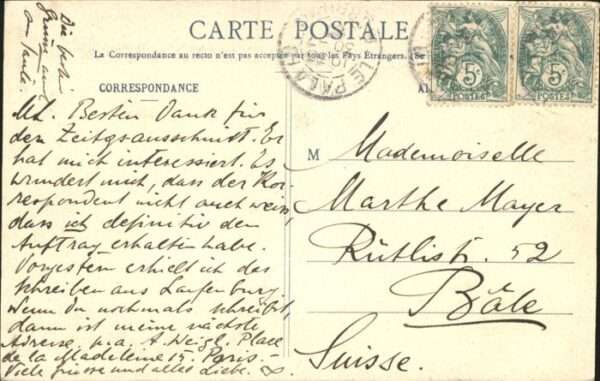 CARTE POSTALE
La Correspondance au recto n'est pas acceptée par tous les Pays Étrangers. (Se
CORRESPONDANCE
Die besten
M
ML. Besten Dank für
den Zeitgsausschnitt. Er
hat mich interessiert. Es
wundert mich, dass der Kor-
respondent nicht auch weiss,
dass ich definitiv den
Auftrag erhalten habe.
Vorgestern erhielt ich das
Schreiben aus Laufenburg.
Wenn Du nochmals schreibst,
dann ist meine nächste
Adresse, p.a. A. Weigl. Place
de la Madeleine 15. Paris.-
Viele grüsse und alles liebe.
Mademoiselle
Marthe Mayer
Rütlistr. 52
Bâle
Suisse.
LE PALAIS
5c
POSTES
5c
POSTES